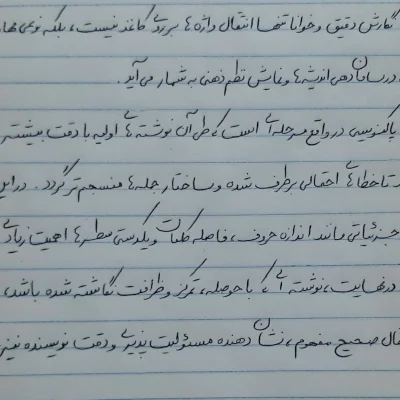 نگارش دقیق و خوانا تنها انتقال واژه ها بر روی کاغذ نیست، بلکه نوعی مها
در سامان دهی اندیشه ها و نمایش نظم ذهنی به شمار می آید.
پاکنویسی در واقع مرحله ای است که طی آن نوشته های اولیه با دقت بیشتر
تا خطاهای احتمالی برطرف شده و ساختار جمله ها منسجم تر گردد. در این
جزئیاتی مانند اندازه حروف، فاصله کلمات و یکدستی سطرها اهمیت زیادی
در نهایت، نوشته ای که با حوصله، تمرکز و ظرافت نگاشته شده باشد،
قال صحیح مفهوم، نشان دهنده مسئولیت پذیری و دقت نویسنده نیز